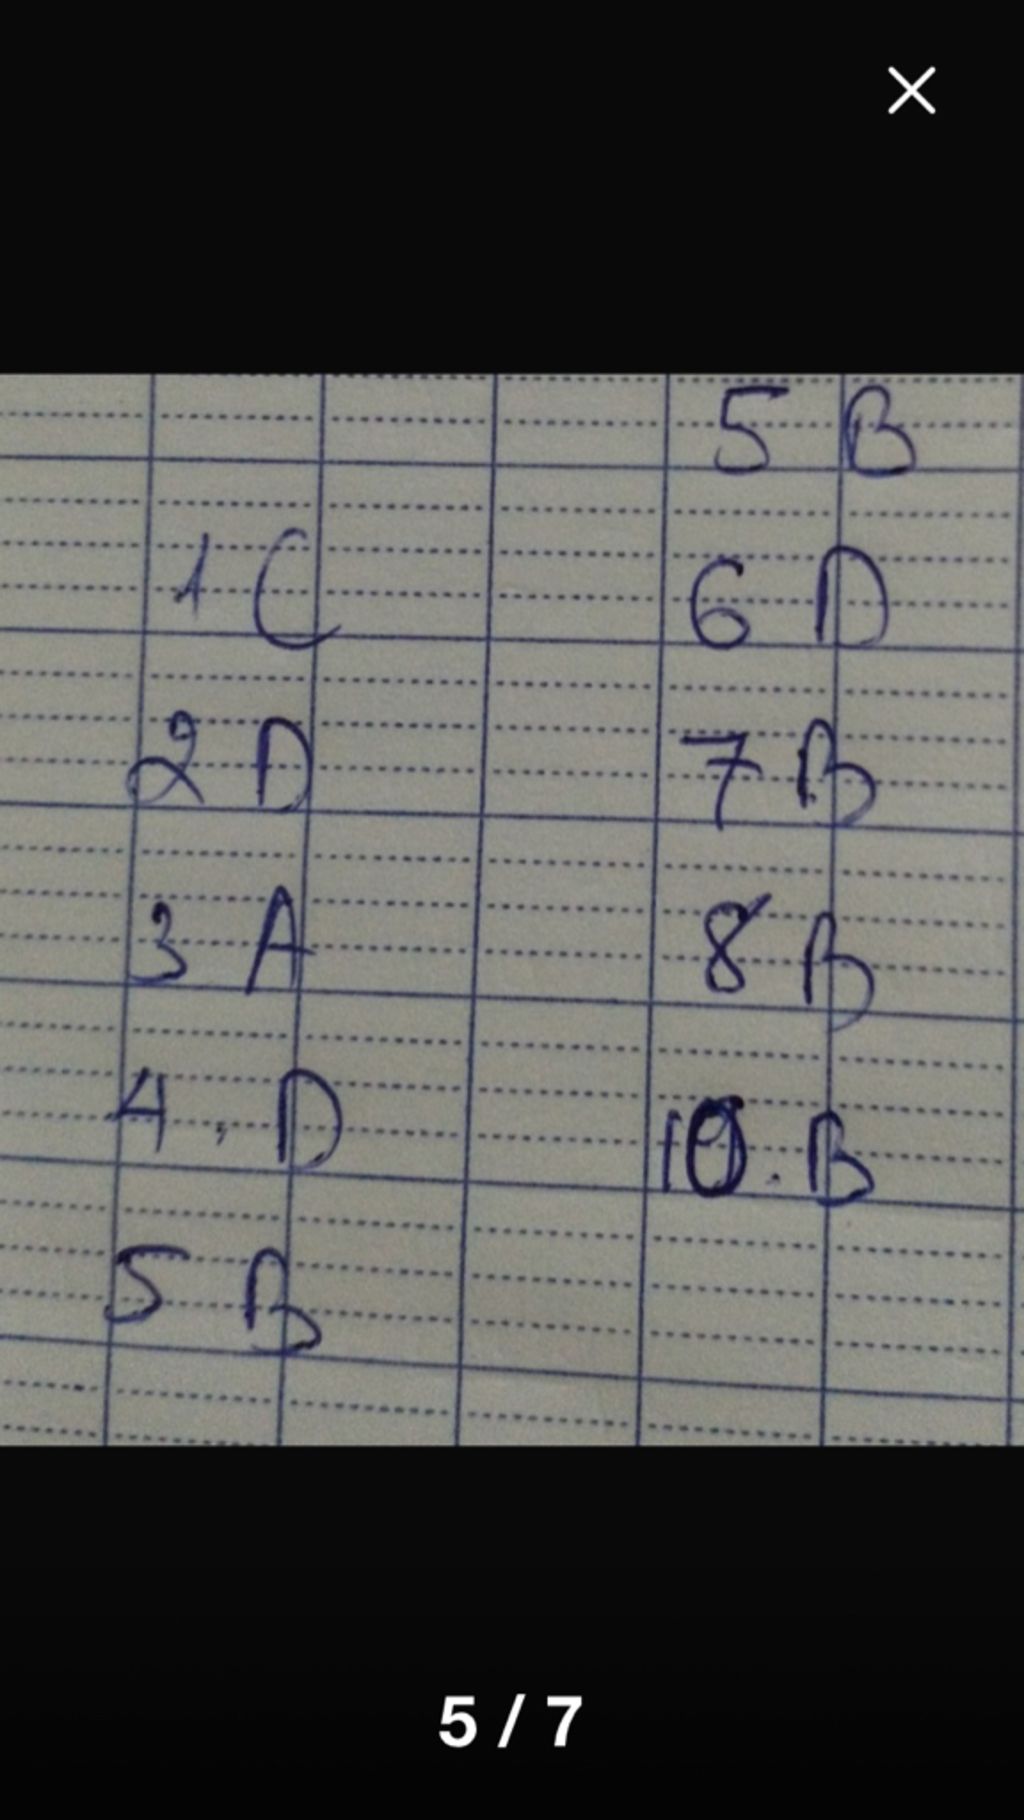 1 C
2 D
3 A
4. D
5 B
5 B
6 D
7 B
8 B
10. B
5 / 7